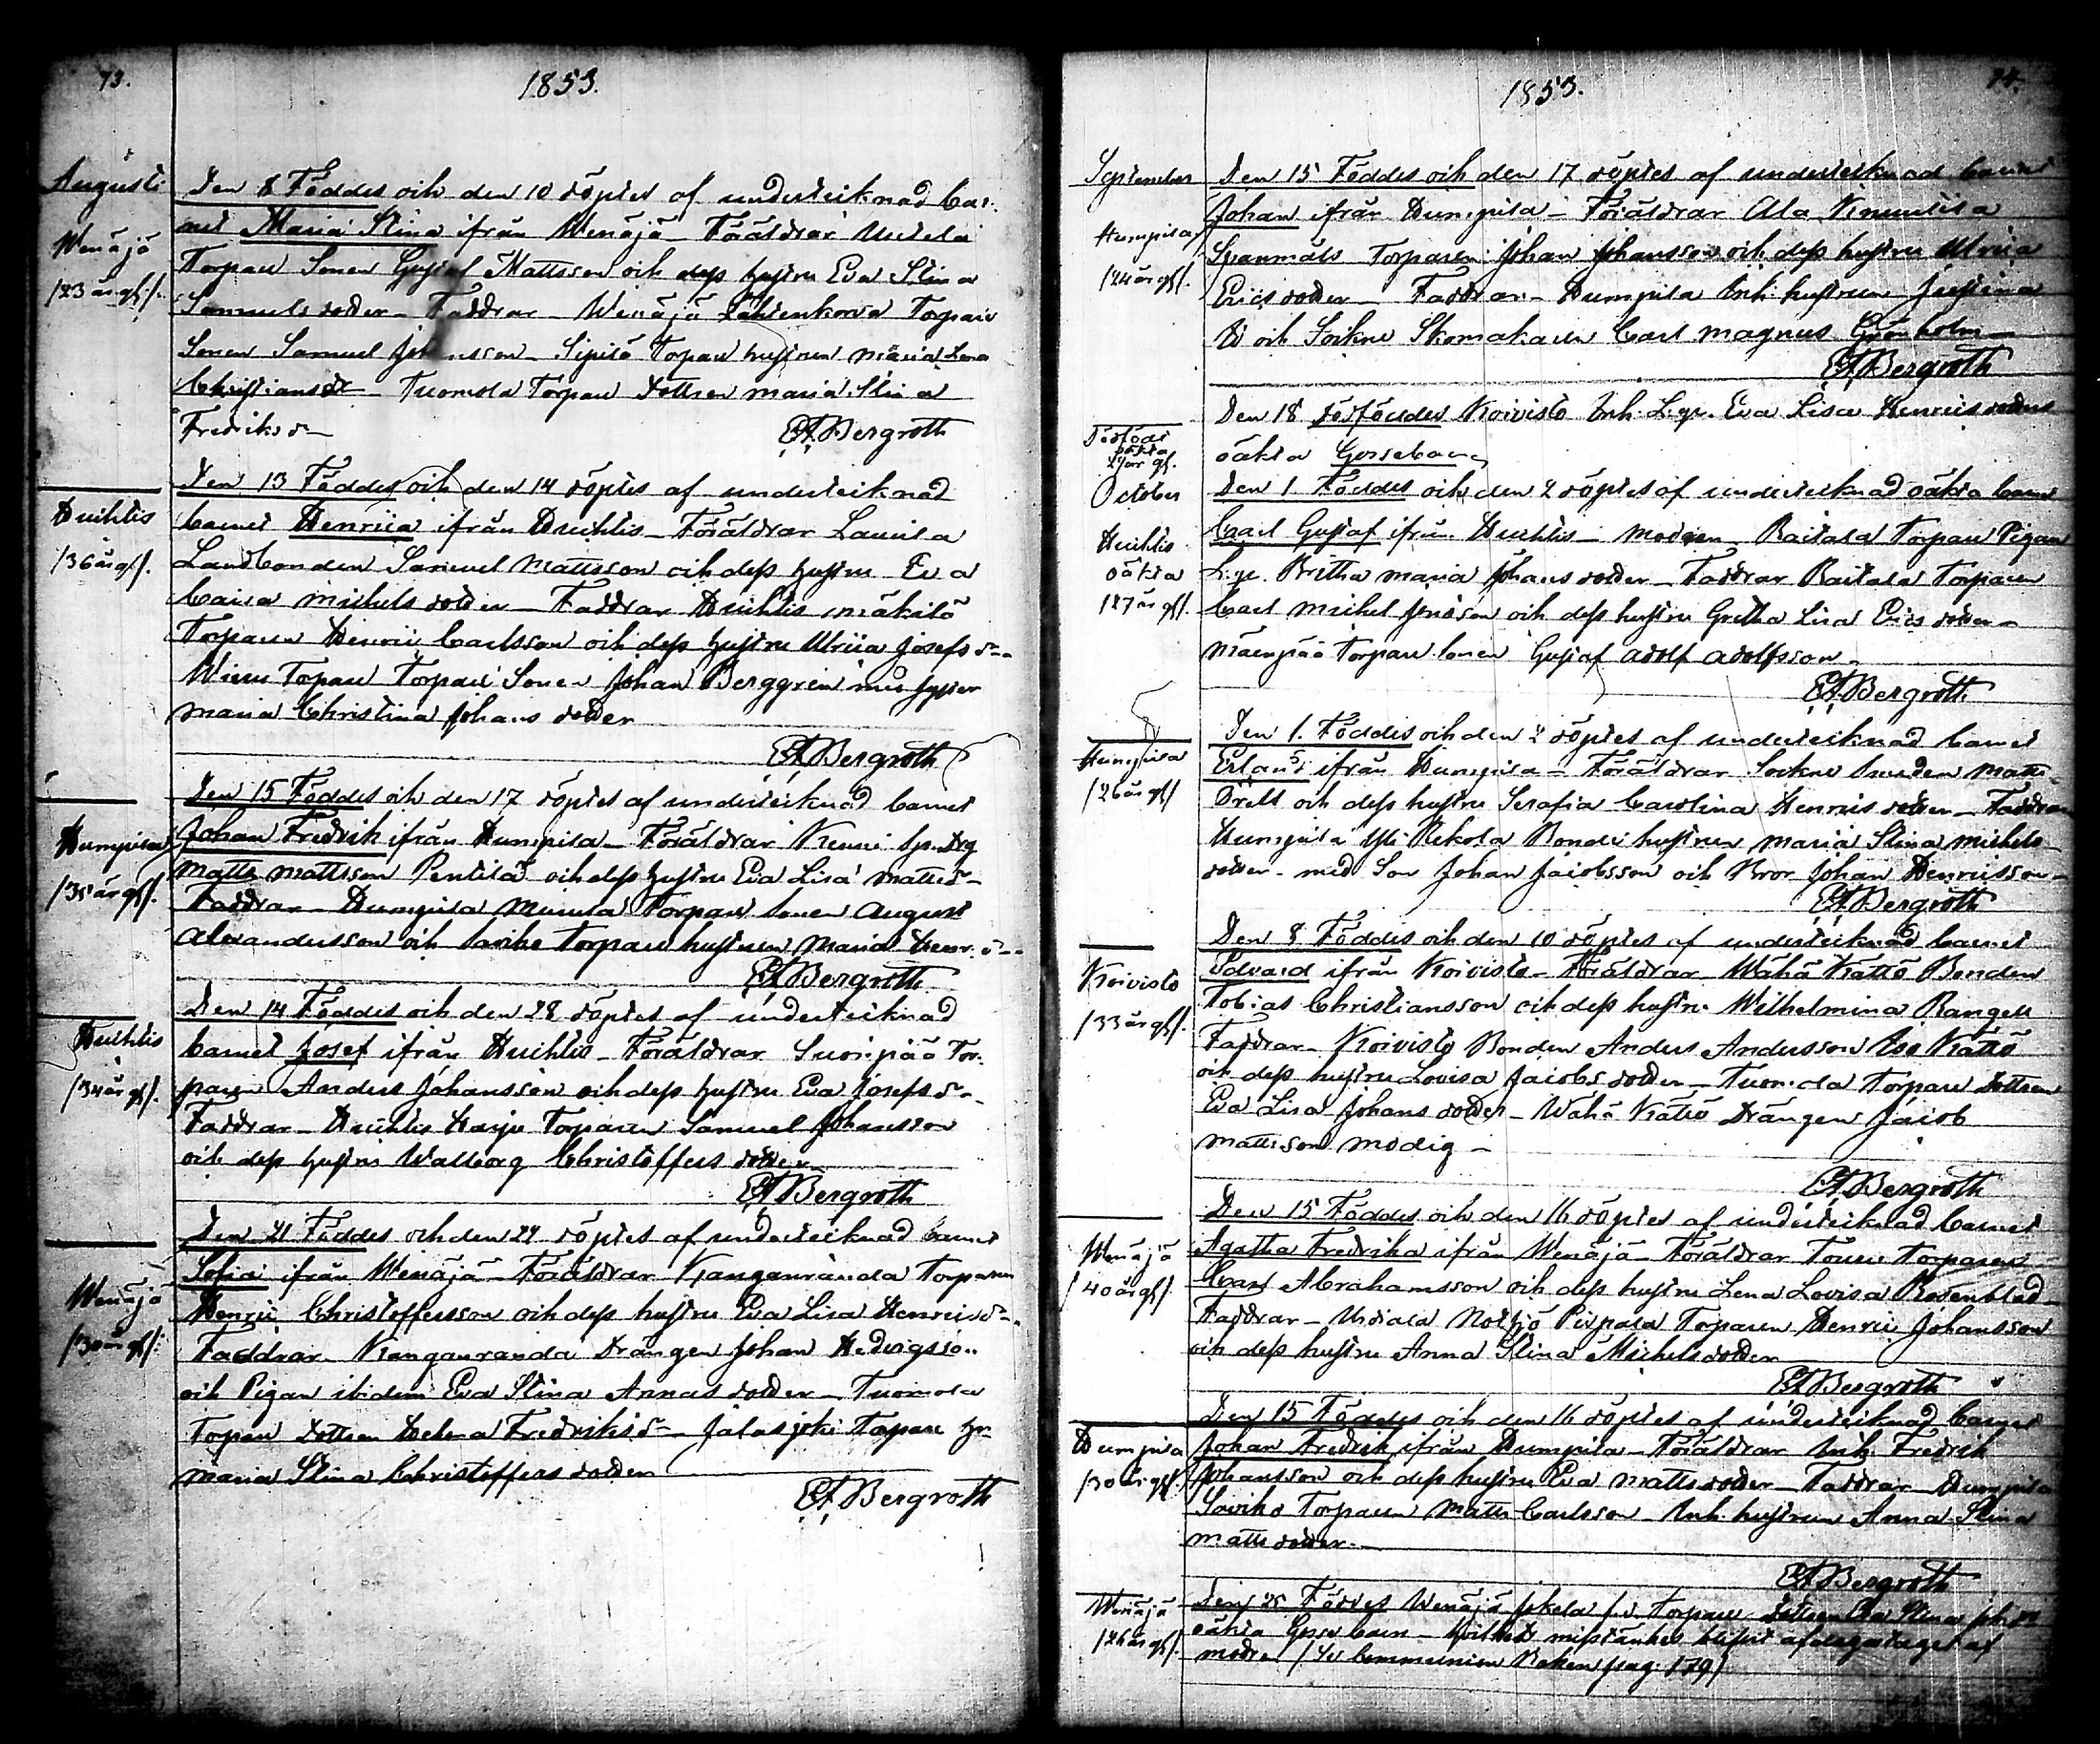 73.
1853.
Augusti
Wenäjä
/23 år gl/.
Den 8 Föddes och den 10 döptes af undertecknad bar-
net Maria Stina ifrån Wenäjä - Föräldrar Uutela
Torpare Sonen Gustaf Mattsson och dess hustru Eva Stina
Samuels dotter - Faddrar - Wenäjä Lähtenkorva Torpare
Sonen Samuel Johansson - Sipilä Torpare hustrun Maria Lena
Christiansdr - Tuomola Torpare dottren Maria Stina
Fredriksdr
EABergroth
Huhtis
/36 år gl/.
Den 13 Föddes och den 14 döptes af undertecknad
barnet Henrica ifrån Huhtis - Föräldrar Laurila
Landbonden Samuel Mattsson och dess hustru Eva
Caisa Michels dotter - Faddrar Huhtis Mäkilä
Torparen Henric Carlsson och dess hustru Ulrica Josefs dr -
Torpare Torpare Sonen Johan Berggren med syster
Maria Christina Johans dotter
EABergroth
Humpila
/35 år gl/.
Den 15 Föddes och den 17 döptes af undertecknad barnet
Johan Fredrik ifrån Humpila - Föräldrar
Matts Mattsson Pentilä och dess hustru Eva Lisa Mattsdr -
Faddrar - Humpila Torpare Sonen August
Alexandersson och Saviko Torpare hustrun Maria Henr.d -
EABergroth
Huhtis
/34 år gl/.
Den 14 Föddes och den 28 döptes af undertecknad
barnet Josef ifrån Huhtis - Föräldrar Suonpää Tor-
paren Anders Johansson och dess hustru Eva Josefs dr -
Faddrar - Huhtis Harju Torparen Samuel Johansson
och dess hustru Walborg Christoffers dotter
EABergroth
Wenäjä
/30 år gl/.
Den 21 Föddes och den 24 döptes af undertecknad barnet
Sofia ifrån Wenäjä - Föräldrar Kanganranda Torparen
Henric Christoffersson och dess hustru Eva Lisa Henricsdr -
Faddrar - Kanganranda Drängen Johan Hedvigsson
och Pigan ibidem Eva Stina Annas dotter - Tuomola
Torpare dottren Helena Fredriksdr - Jalasjoki Torpare hu
Maria Stina Christoffers dotter
EABergroth
1853.
74.
September
Humpila
/24 år gl/.
Den 15 Föddes och den 17 döptes af undertecknad barnet
Johan ifrån Humpila - Föräldrar Ala Knuutila
Spanmåls Torparen Johan Johansson och dess hustru Ulrica
Erics dotter - Faddrar - Humpila Inh. hustrun Justina
D och Sockne Skomakaren Carl Magnus Grönholm -
EABergroth
Dödfödt
oäkta
år gl.
Den 18 dödföddes Koivisto Inh. L.qv. Eva Lisa Henrics dotters
oäkta Gossebarn
October
Huhtis
oäkta
/27 år gl/.
Den 1. Föddes och den 2 döptes af undertecknad oäkta barnet
Carl Gustaf ifrån Huhtis - Modren Raitala Torpare Pigan
L.qv. Britha Maria Johans dotter - Faddrar Raitala Torparen
Carl Michel Jonsson och dess hustru Gretha Lisa Erics dotter -
Mäenpää Torpare Sonen Gustaf Adolf Adolfsson -
EABergroth
Humpila
/26 år gl/
Den 1. Föddes och den 2 döptes af undertecknad barnet
Erland ifrån Humpila - Föräldrar Sockne Smeden Matts
Orell och dess hustru Serafia Carolina Henrics dotter - Faddrar
Humpila Yli Kekola Bonde hustrun Maria Stina Michels
dotter - med Son Johan Jacobsson och Bror Johan Henricsson -
EABergroth
Koivisto
/33 år gl/.
Den 8 Föddes och den 10 döptes af undertecknad barnet
Edvard ifrån Koivisto - Föräldrar Wähä Kättö Bonden
Tobias Christiansson och dess hustru Wilhelmina Rangell
Faddrar - Koivisto Bonden Anders Andersson Iso Kättö
och dess hustru Lovisa Jacobs dotter - Tuomola Torpare dottren
Eva Lisa Johans dotter - Wähä Kättö Drängen Jacob
Mattsson Modig -
EABergroth
Wenäjä
/40 år gl/
Den 15 Föddes och den 16 döptes af undertecknad barnet
Agatha Fredrika ifrån Wenäjä - Föräldrar Torparen
Carl Abrahamsson och dess hustru Lena Lovisa Rosenblad
Faddrar - Urdiala Notsjö Pirpala Torparen Henric Johansson
och dess hustru Anna Stina Michels dotter
EABergroth
Humpila
/30 år gl/.
Den 15 Föddes och den 16 döptes af undertecknad barnet
Johan Fredrik ifrån Humpila - Föräldrar Inh. Fredrik
Johansson och dess hustru Eva Matts dotter - Faddrar - Humpila
Saviko Torparen Matts Carlsson - Inh. hustrun Anna Stina
Matts dotter -
EABergroth
Wenäjä
/26 år gl/.
Den 25 Föddes Wenäjä Torpare dottren Eva Stina
oäkta Gosse barn - hvilket misstänkes blifvit afdagataget af
modren / Se Communion Boken pag. 179/